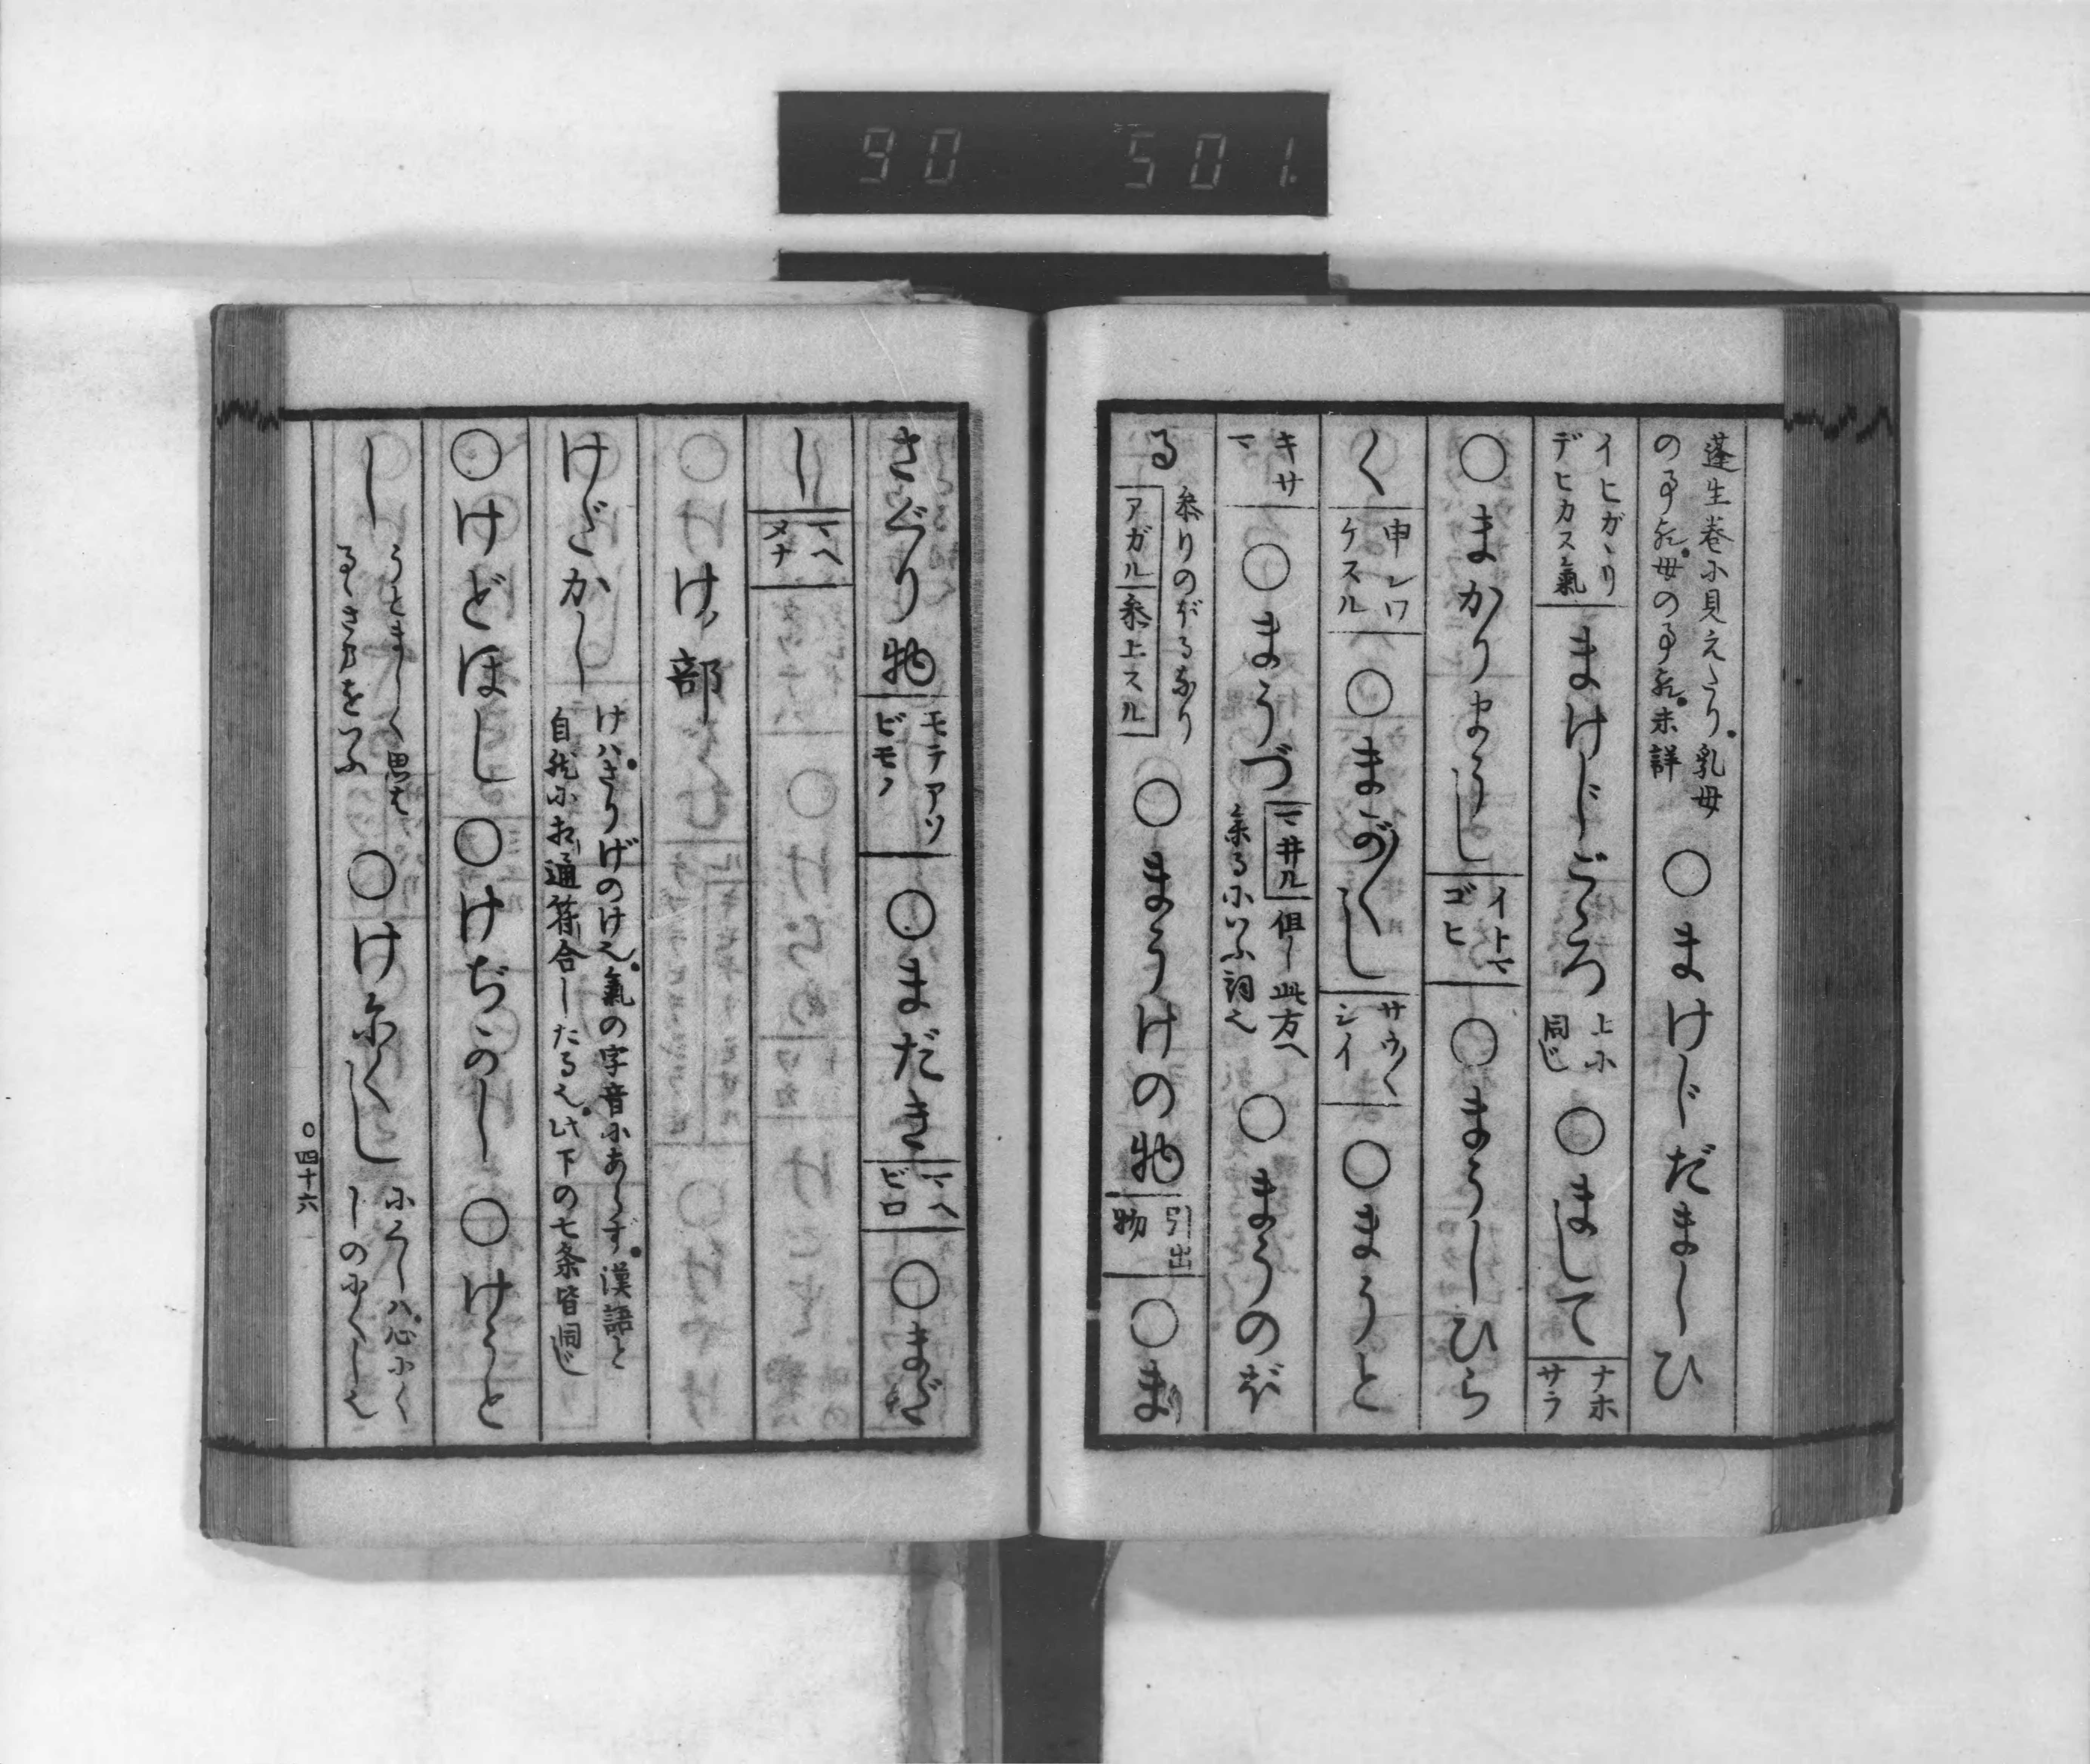 90 501.
蓬生巻に見えたり。乳母
の事也。母の事也。未詳
○まけじだましひ
イヒガヽリ
デヒカス氣
まけじごゝろ
上に
同じ
○まして
ナホ
サラ
○まかりまうし
イトマ
ゴヒ
○まうしひら
く
申シワ
ケスル
○まが〳〵し
サウ〳〵
シイ
○まうと
キサ
マ
○まうづ
マ井ル 但し此方へ
来るにいふ詞也
○まうのぼ
る
参りのぼるなり
アガル 参上スル
○まうけの物
引出
物
○ま
さぐり物
モテアソ
ビモノ
○まだき
マヘ
ビロ
○まだ
し
マヘ
カタ
け部
けざかし
けハさりげのけ也。氣の字音にあらず。漢語と
自然にお通符合したる也。此下の七条皆同じ
○けどほし
○けぢかし
○けうと
し
うとましく思は
るゝさまをいふ
○けにくし
にくしハ心にく
しのにくし也
○四十六